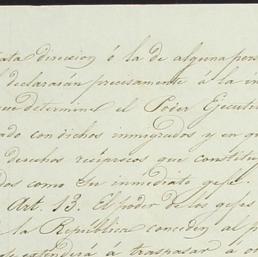 ata direccion ó la de alguna pers
declararán precisamente á la in
que determine el Poder Ejecuti
do con dichos inmigrados y en qu
derechos reciprocos que constitu
dos como su inmediato gefe.
Art. 13. El poder de los gefes
la República conceden al p
se estenderá á traspasar á o